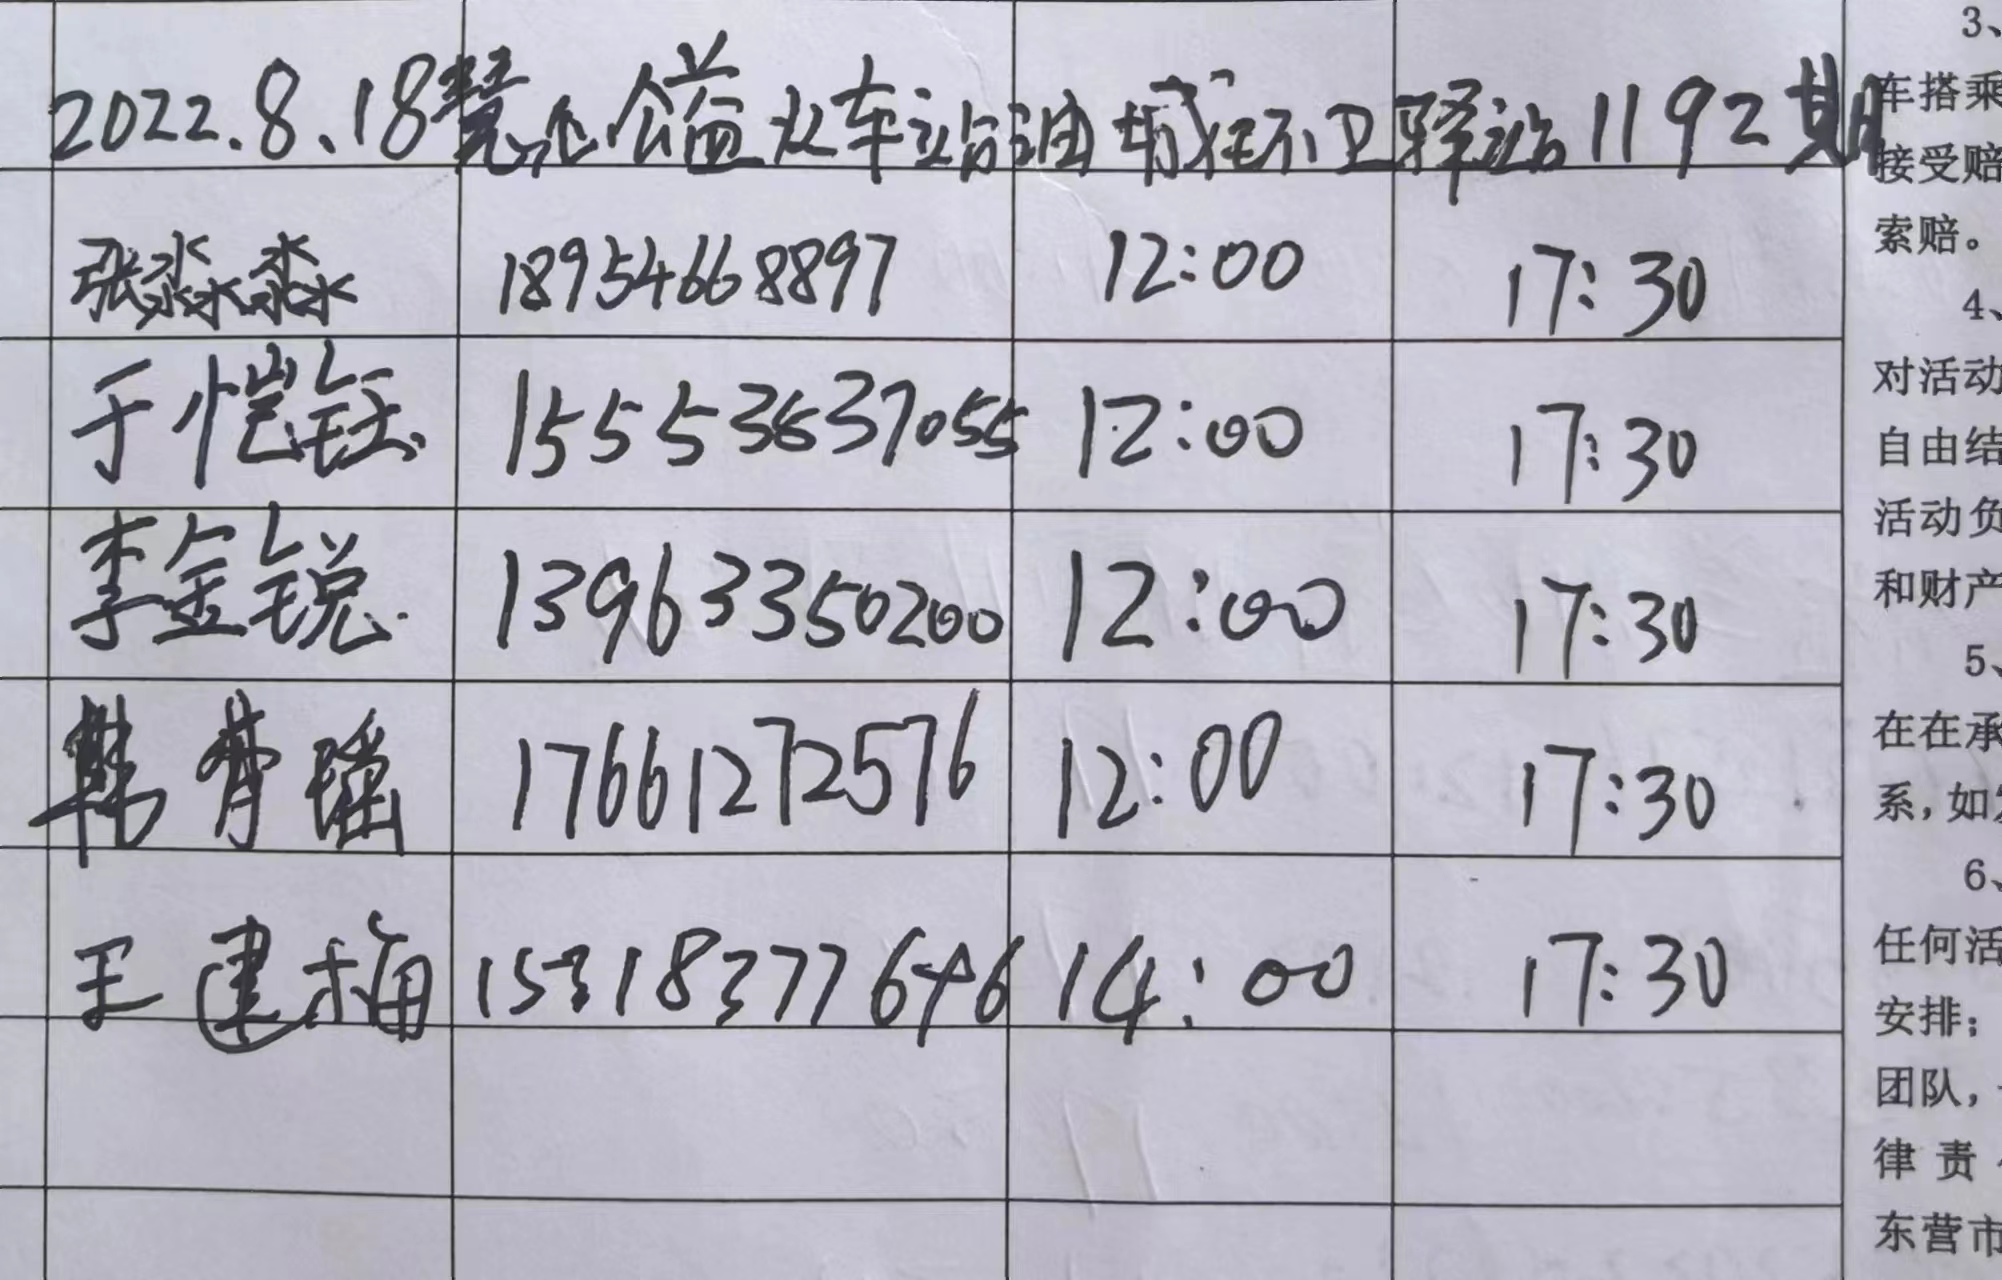 2022.8.18慧心公益火车站油城环卫驿站1192期
张淼淼 18954668897 12:00 17:30
于恺钰 15553637055 12:00 17:30
李金锐 13963350200 12:00 17:30
韩 瑶 17661272576 12:00 17:30
王建梅 15318377646 14:00 17:30
3、
车搭乘
接受赔
索赔。
4、
对活动
自由结
活动负
和财产
5、
在在承
系,如
6、
任何活
安排;
团队,
律责
东营市